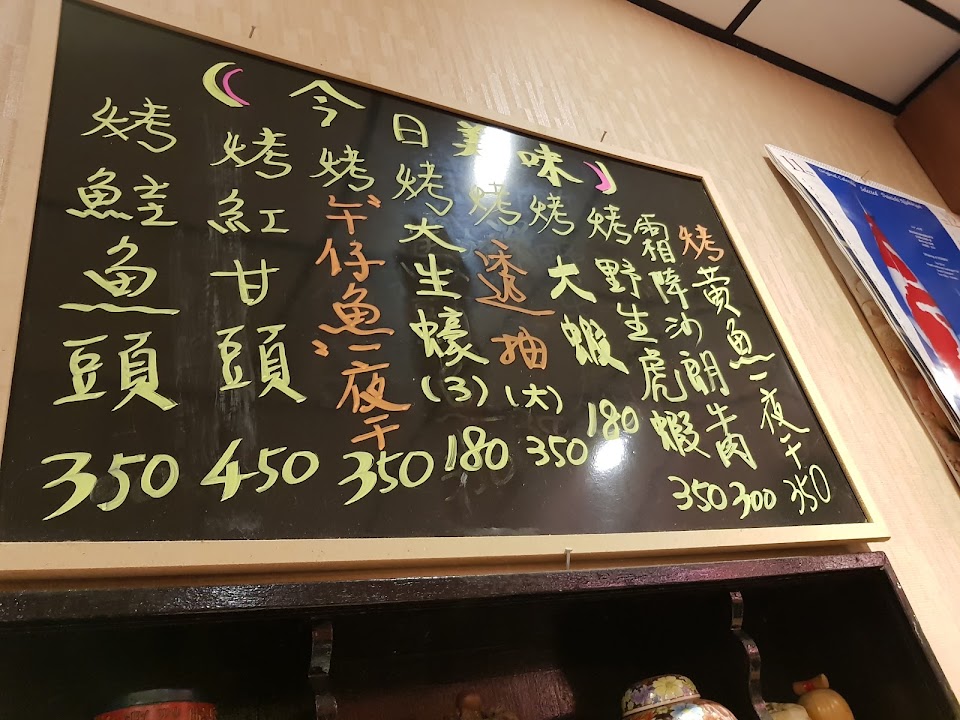 今日美味
烤鮭魚頭 350
烤紅甘頭 450
烤午仔魚一夜干 350
烤大生蠔(3) 180
烤透抽(大) 350
烤大蝦 180
烤野生虎蝦 350
霜降沙朗牛肉 300
烤黃魚一夜干 350